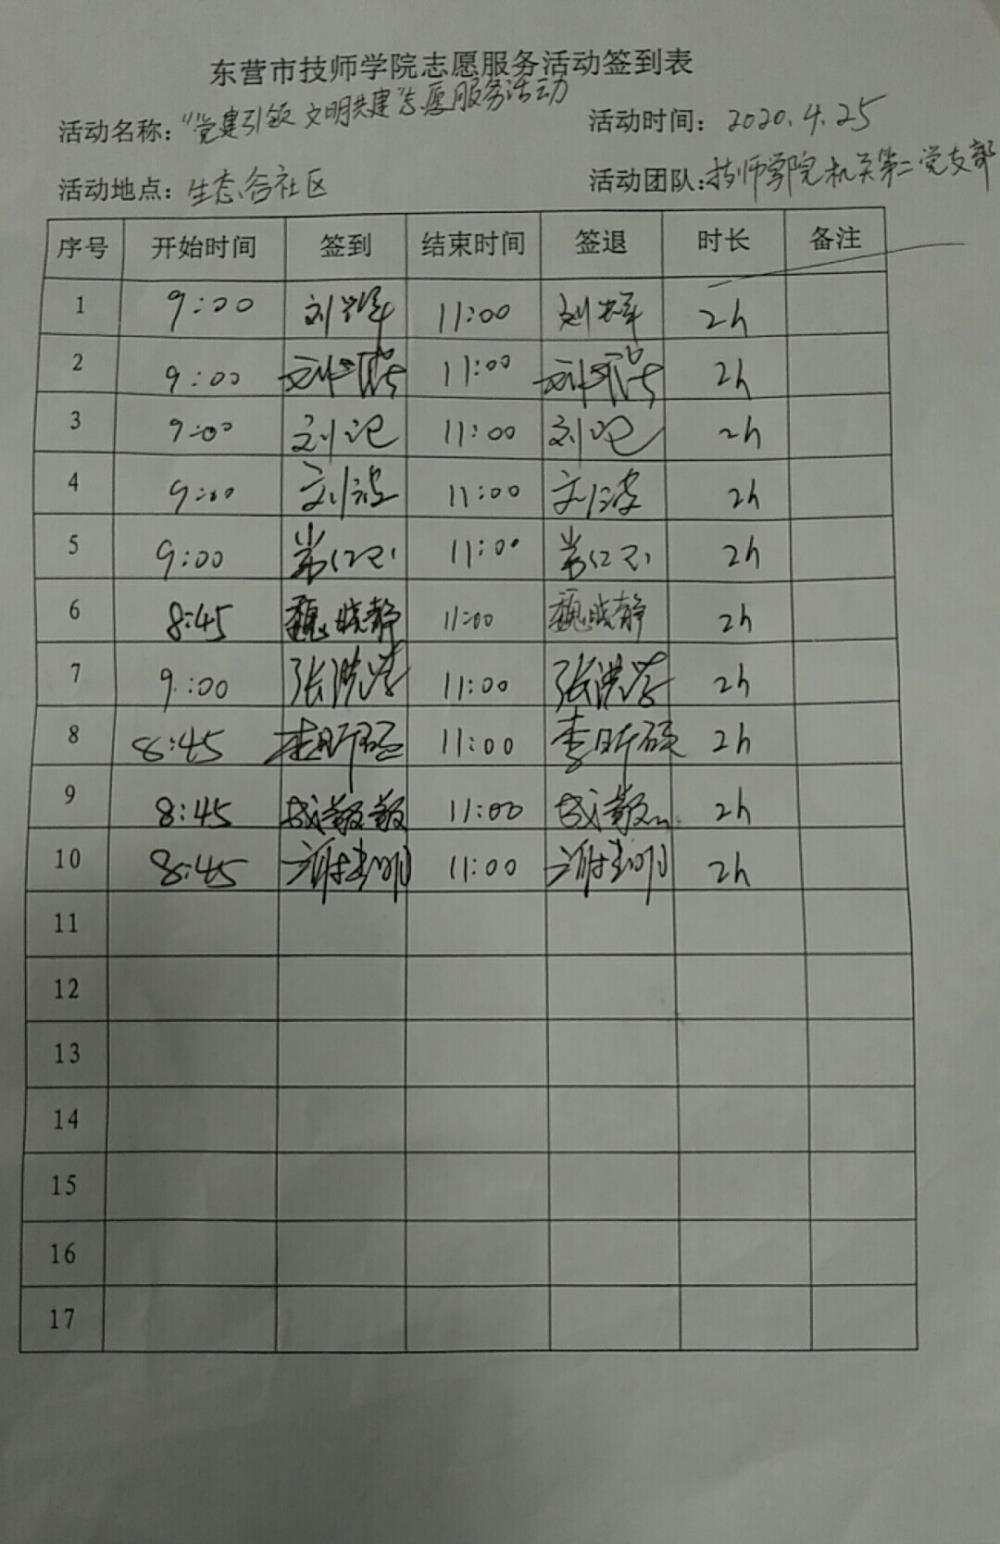 东营市技师学院志愿服务活动签到表
活动名称：“党建引领 文明共建”志愿服务活动 活动时间：2020.4.25
活动地点：生态谷社区 活动团队：技师学院机关第二党支部
序号 开始时间 签到 结束时间 签退 时长 备注
1 9:00 11:00 2h
2 9:00 11:00 2h
3 9:00 刘 11:00 刘 2h
4 9:00 刘波 11:00 刘波 2h
5 9:00 11:00 2h
6 8:45 魏晓静 11:00 魏晓静 2h
7 9:00 张洪 11:00 张洪 2h
8 8:45 李昕 11:00 李昕 2h
9 8:45 11:00 2h
10 8:45 谢 11:00 谢 2h
11
12
13
14
15
16
17